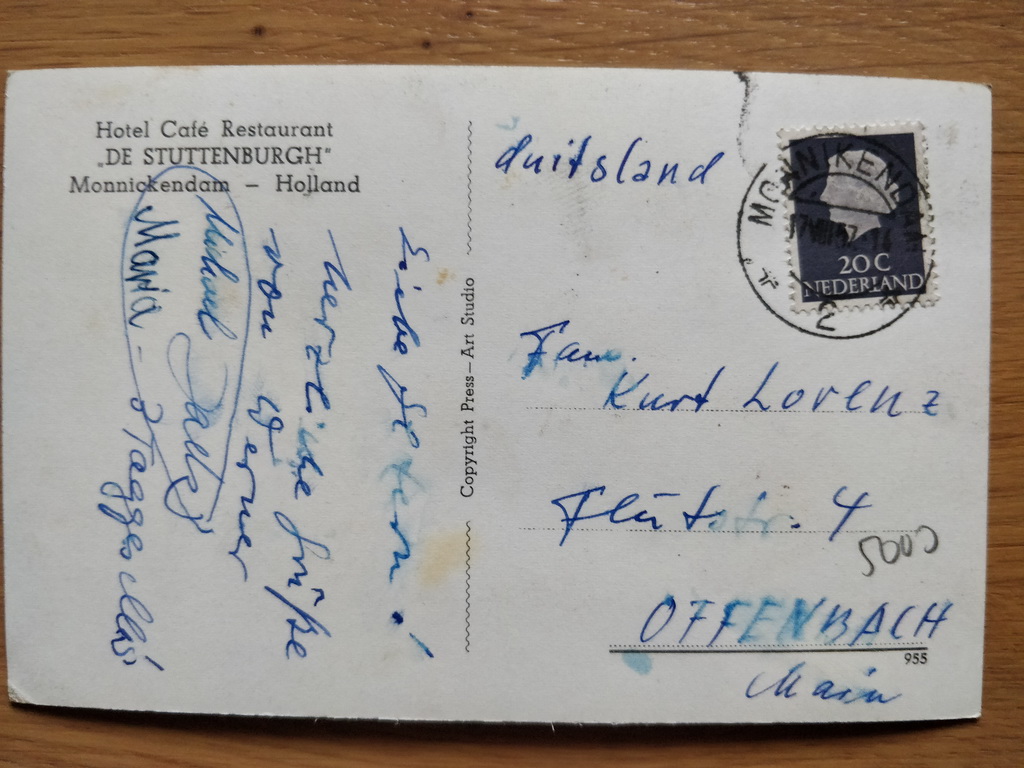 Hotel Café Restaurant
„DE STUTTENBURGH"
Monnickendam – Holland
Liebe Eltern!
Herzliche Grüße
von Werner
Michael
Maria –
Copyright Press–Art Studio
duitsland
MONNIKENDAM
17 VIII 57-14
2
20 C
NEDERLAND
Fam.
Kurt Lorenz
4
5000
OFFENBACH
955
Main